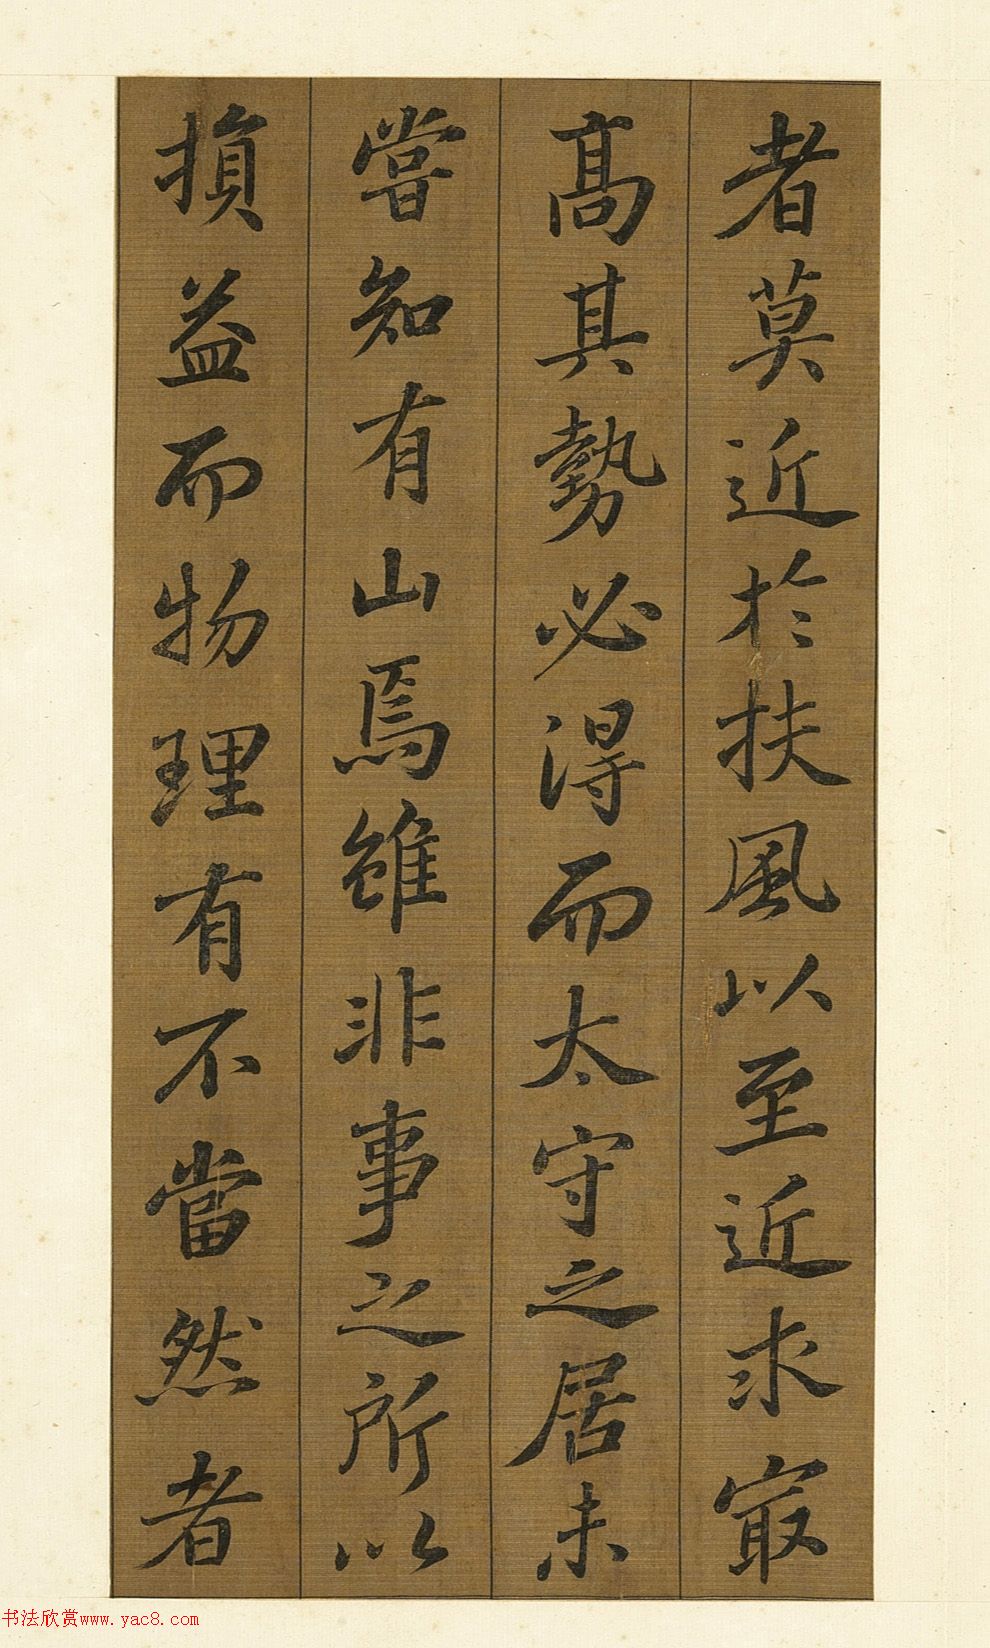 者莫近於扶風以至近求冣
髙其勢必得而太守之居未
嘗知有山焉雖非事之所以
損益而物理有不當然者
书法欣赏www.yac8.com